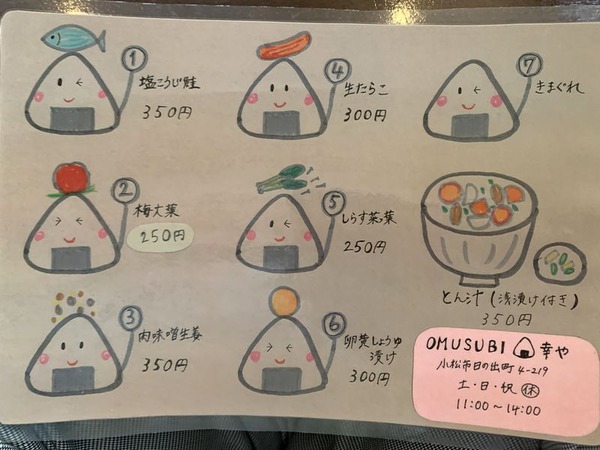 ① 塩こうじ鮭
350円
② 梅大葉
250円
③ 肉味噌生姜
350円
④ 生たらこ
300円
⑤ しらす菜っ葉
250円
⑥ 卵黄しょうゆ
漬け
300円
⑦ きまぐれ
とん汁(浅漬け付き)
350円
OMUSUBI 幸や
小松市日の出町4-219
土・日・祝 休
11:00~14:00